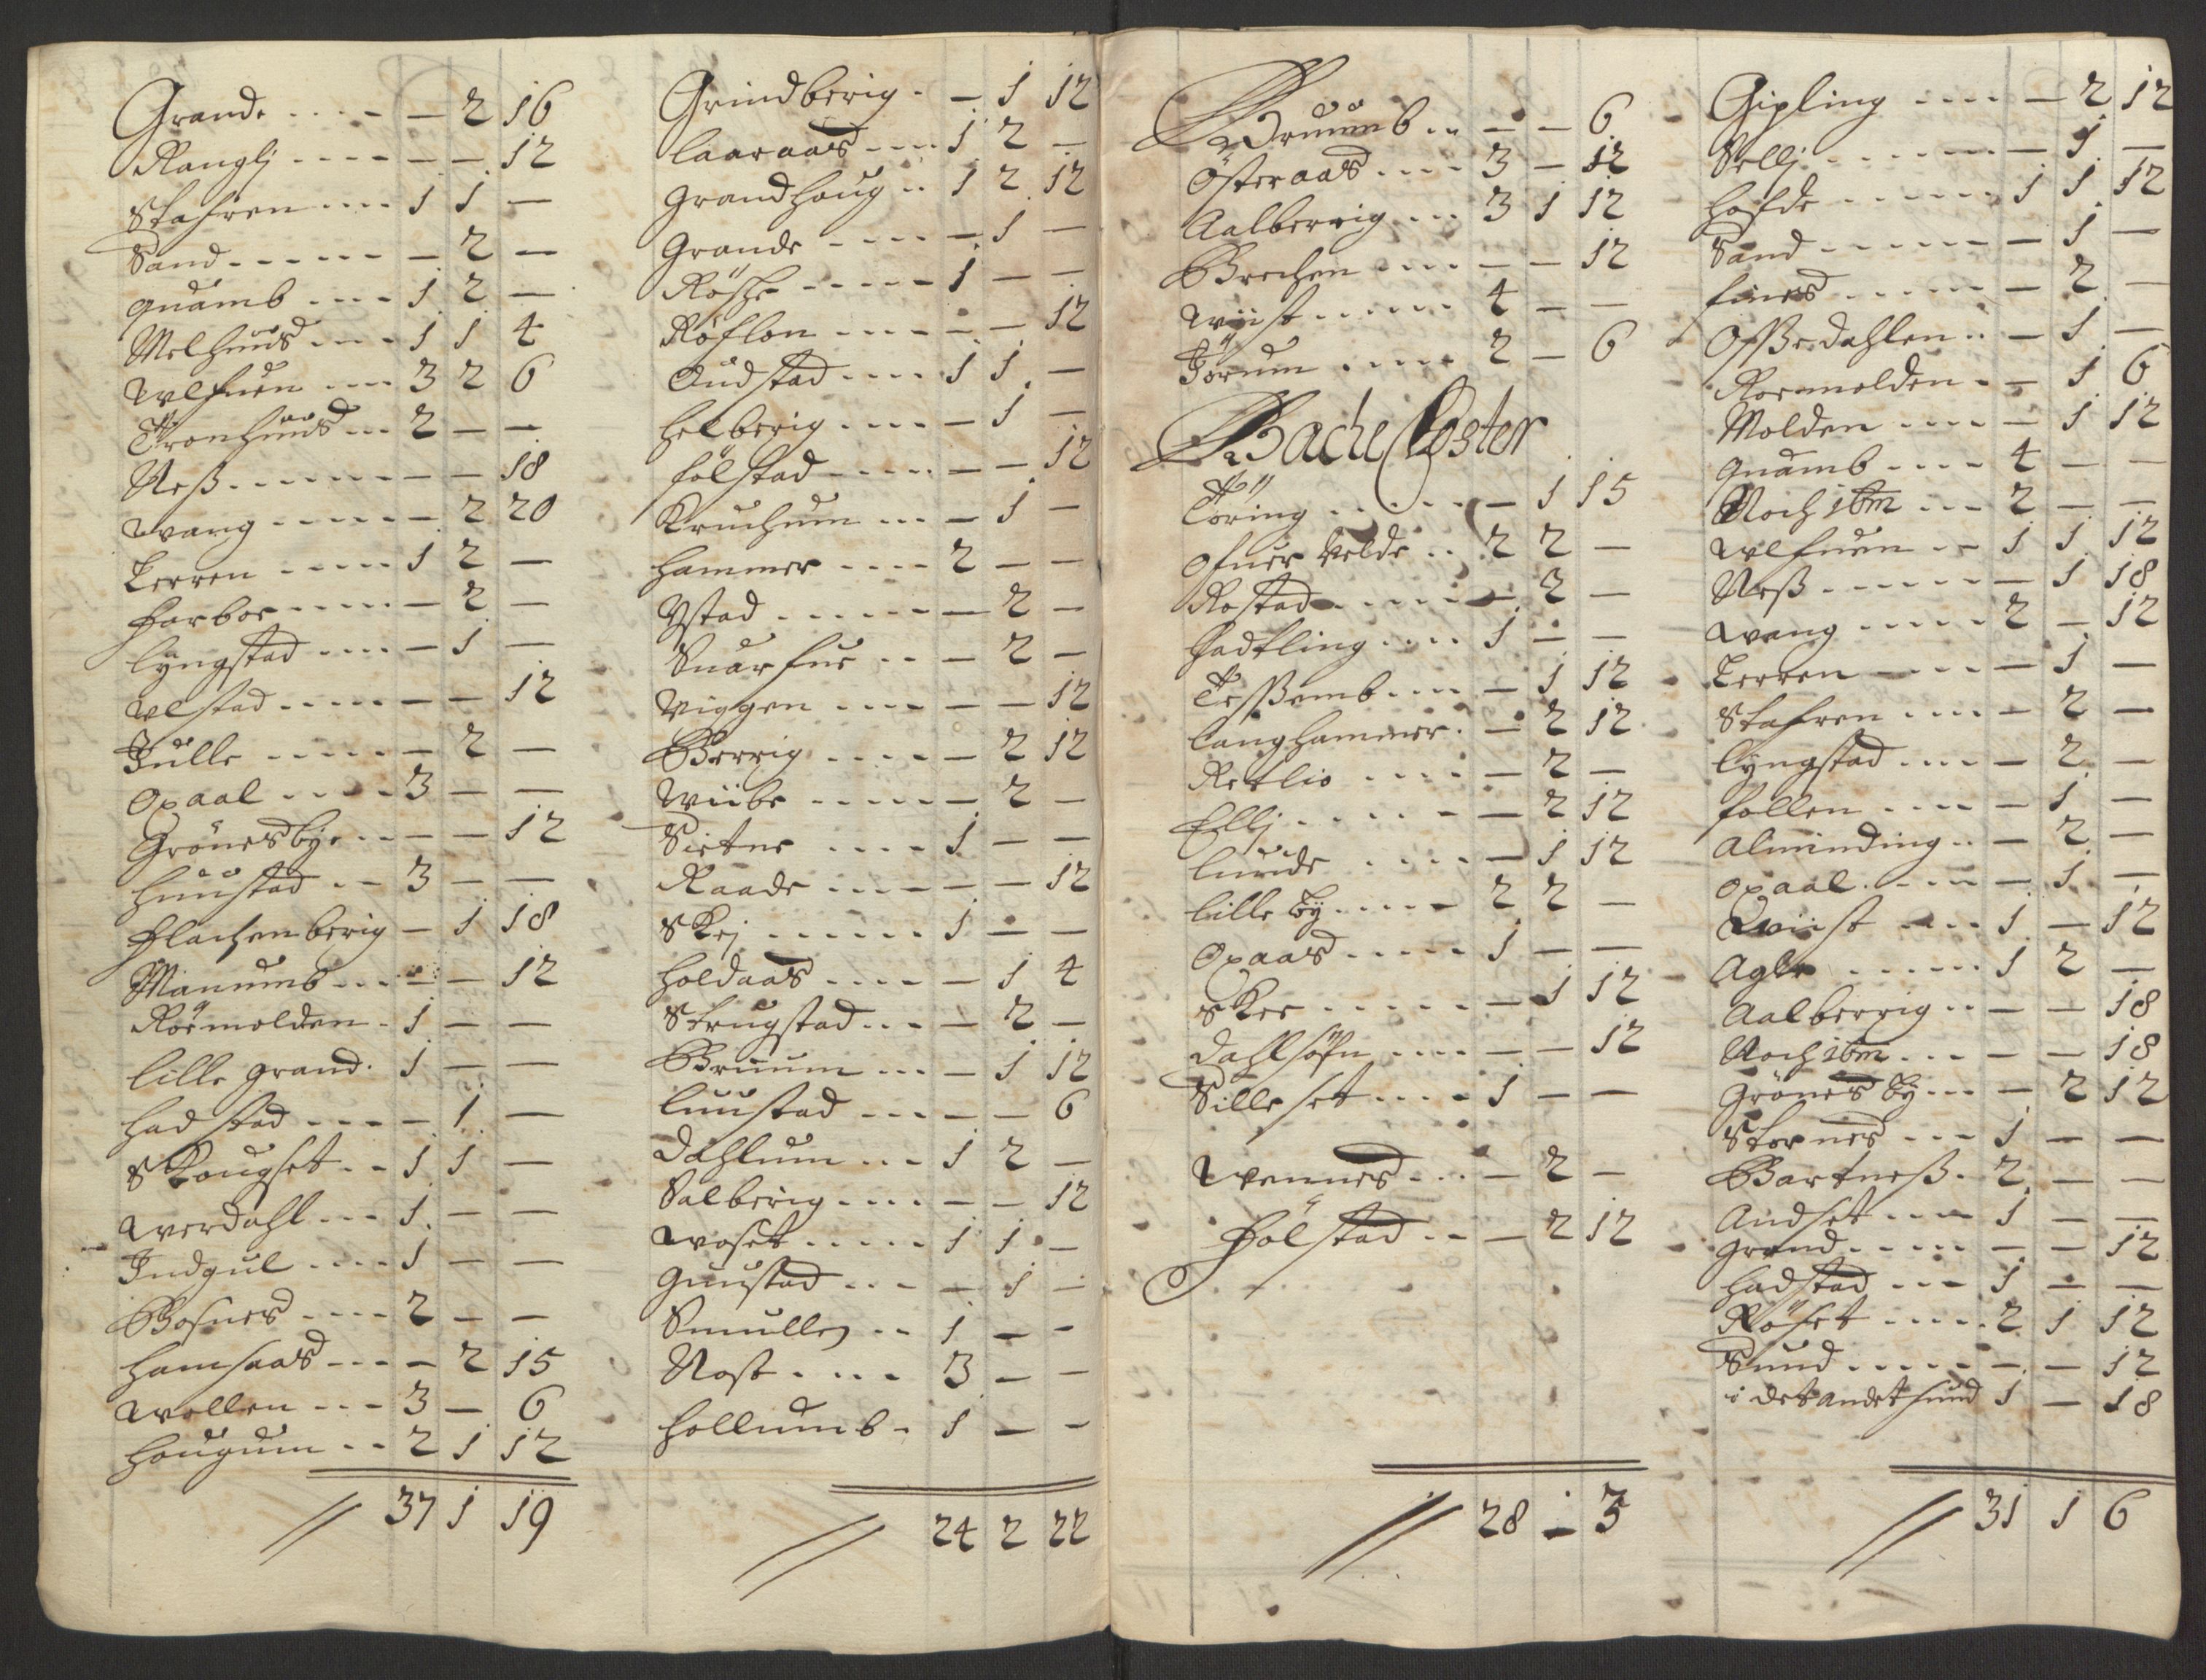 Grande .... — 2 16
Ranglj ..... — — 12
Stafren .... 1 1 —
Sand ...... — 2 —
quamb .... 1 2 —
Melhuus ... 1 1 4
wlfuen .... 3 2 6
Tronhuus ... 2 — —
Neß ...... — — 18
wang ..... — 2 20
Lerren ..... 1 2 —
Harboe ..... — 2 —
lyngstad .... — 1 —
wlstad ..... — — 12
Julle ..... — 2 —
Opaal .... 3 — —
Grönesbye .. — — 12
huustad .. 3 — —
Flachenberig — 1 18
Manumb ... — — 12
Röemolden . 1 — —
lille grand . 1 — —
hadstad .... — 1 —
Skougset .. 1 1 —
werdahl ... 1 — —
Indgul .... 1 — —
Bosnes .... 2 — —
hamsaas .... — 2 15
wollen ... 3 — 6
hougum .. 2 1 12
37 1 19
Grindberig . — 1 12
laaraas .... 1 2 —
grandhoug .. 1 2 12
grande ..... — 1 —
Röshe ..... 1 — —
Röflon ..... — — 12
Oudstad .... 1 1 —
helberig .... — 1 —
fölstad ..... — — 12
Kruchum ... — 1 —
hammer .... 2 — —
Ystad ...... — 2 —
Snarfue ... — 2 —
viggen ..... — — 12
Berrig ..... — 2 12
wiibe ..... — 2 —
Sietne .... 1 — —
Raade ..... — — 12
Skej ...... 1 — —
holdaas .... — 1 4
Strugstad ... — 2 —
Bruum ... — 1 12
luustad .... — — 6
Dahlum ... 1 2 —
Salberig .... — — 12
woset ..... 1 1 —
Guustad ... — 1 —
Smullej .. 1 — —
Nost .... 3 — —
hollumb . 1 — —
24 2 22
Drumb .. — — 6
Österaas .... 3 — 12
Aalberrig ... 3 1 12
Brechen .... — — 12
wiist ..... 4 — —
Jörum ..... 2 — 6
Bache Closter
Töring ..... — 1 15
ofuer velde .. 2 2 —
Rostad ..... — 2 —
hadtling .... 1 — —
Tessßemb .... — 1 12
langhammer . — 2 12
Retlio .... — 2 —
Ellj ...... — 2 12
lunde .... — 1 12
lille by ..... 2 2 —
Opaas ..... 1 — —
Skee ..... — 1 12
Dahlsöfn .... — — 12
Sille set .... 1 — —
wennes ... — 2 —
Hölstad .. — 2 12
28 — 3
Gipling .... — 2 12
Sellj ...... — 1 —
hofde ...... 1 1 12
Sand ...... — 1 —
fines ...... — 2 —
Ofßedahlen .. — 1 —
Roemolden . — 1 6
Molden .... — 1 12
quamb .... 4 — —
Noch ibm ... 2 — —
wlfuen .. 1 1 12
Neß ...... — 1 18
wang ..... 2 — 12
Lerren .... — 1 —
Stafren .... — 2 —
lyngstad .... — 2 —
follen .... — 1 —
Alminding .. — 2 —
opaal ..... — 1 —
Qviist .... 1 — 12
Agle ...... 1 2 —
Aalberrig .. — — 18
Noch ibm ... — — 18
grönes by ... — 2 12
Stornes ... 1 — —
Bartneß . 2 — —
Andset .... 1 — —
grand ..... — — 12
hadstad ... 1 — —
Röset ..... 2 1 12
Sund ...... — — 12
i det andet sund 1 — 18
31 1 6